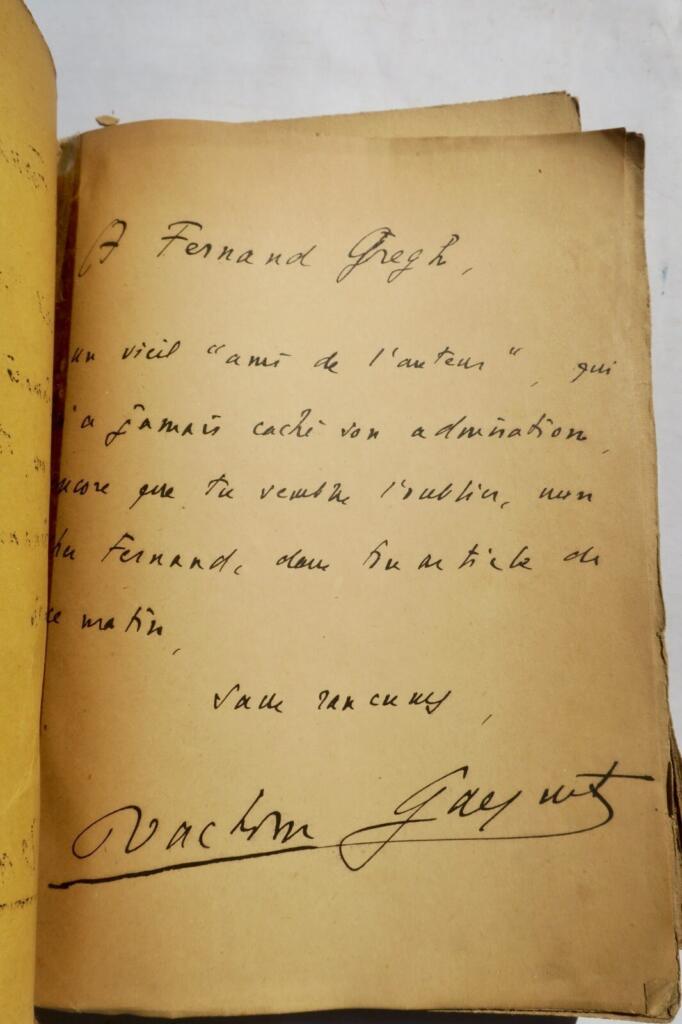 A Fernand Gregh,
un vieil "ami de l'auteur", qui
a jamais caché son admiration,
encore que tu semble l'oublier, mon
Fernand, dans ton article de
ce matin,
Sans rancunes,
Joachim Gasquet